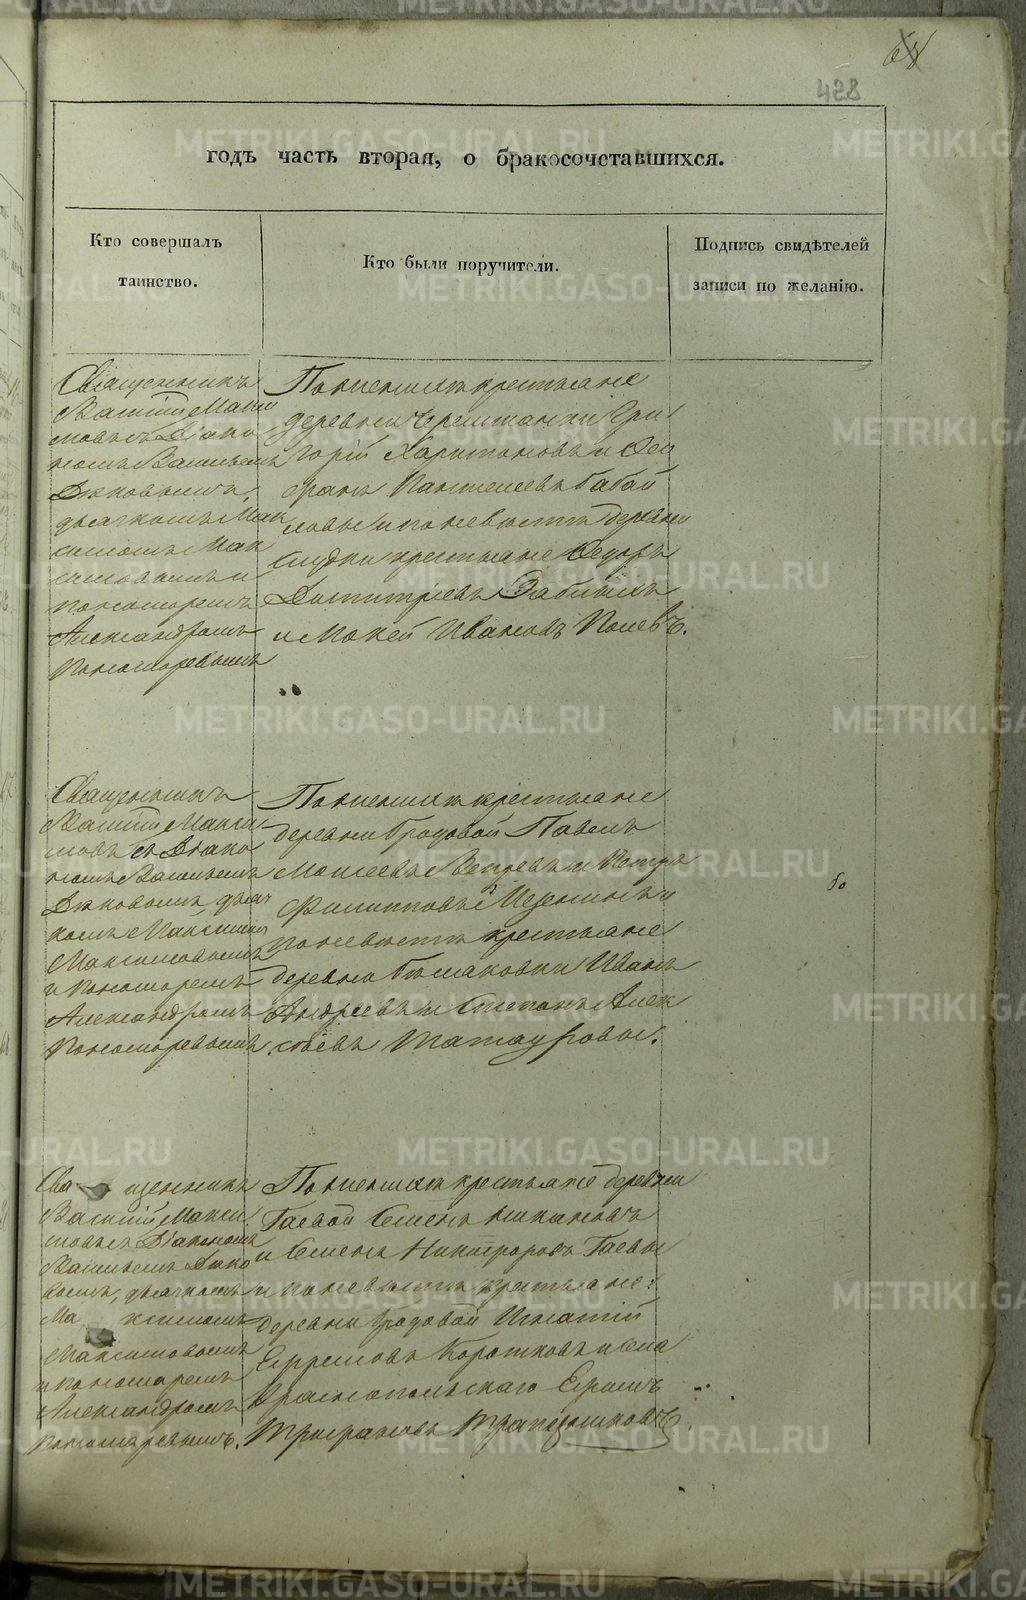 428
годъ часть вторая, о бракосочетавшихся.
Кто совершалъ
таинство.
Кто были поручители.
Подпись свидѣтелей
записи по желанію.
Священникъ
Василій Макси
мовъ съ Діако
номъ Васильемъ
дьячкомъ Мак
симомъ Мак
симовымъ и
пономаремъ
Александромъ
Пономаревымъ
По женихѣ крестьяне
деревни Гри
горій Харитоновъ и Сте
фанъ Пантелеевъ Бабай
ловы и по невѣстѣ деревни
крестьяне Ѳедоръ
Дмитріевъ
и Мокей Ивановъ Полевъ.
Священникъ
Василій Макси
мовъ съ Діако
номъ Васильемъ
дьяч
комъ Максимомъ
Максимовымъ
и пономаремъ
Александромъ
Пономаревымъ
По женихѣ крестьяне
деревни Бродовой Павелъ
Моисеевъ Вепревъ и Петръ
Филипповъ и
по невѣстѣ крестьяне
деревни Иванъ
Андреевъ и Степанъ Алек
сѣевъ Татауровы.
Священникъ
Василій Макси
мовъ съ Діакономъ
Васильемъ
дьячкомъ
Максимомъ
Максимовымъ
и пономаремъ
Александромъ
Пономаревымъ.
По женихѣ крестьяне деревни
Гаевой Семенъ
и Семенъ Никифоровъ Гаевы
и по невѣстѣ крестьяне:
деревни Бродовой Игнатій
Ефремовъ Коротковъ и села
Краснопольскаго Ефимъ
Трифановъ
METRIKI.GASO-URAL.RU